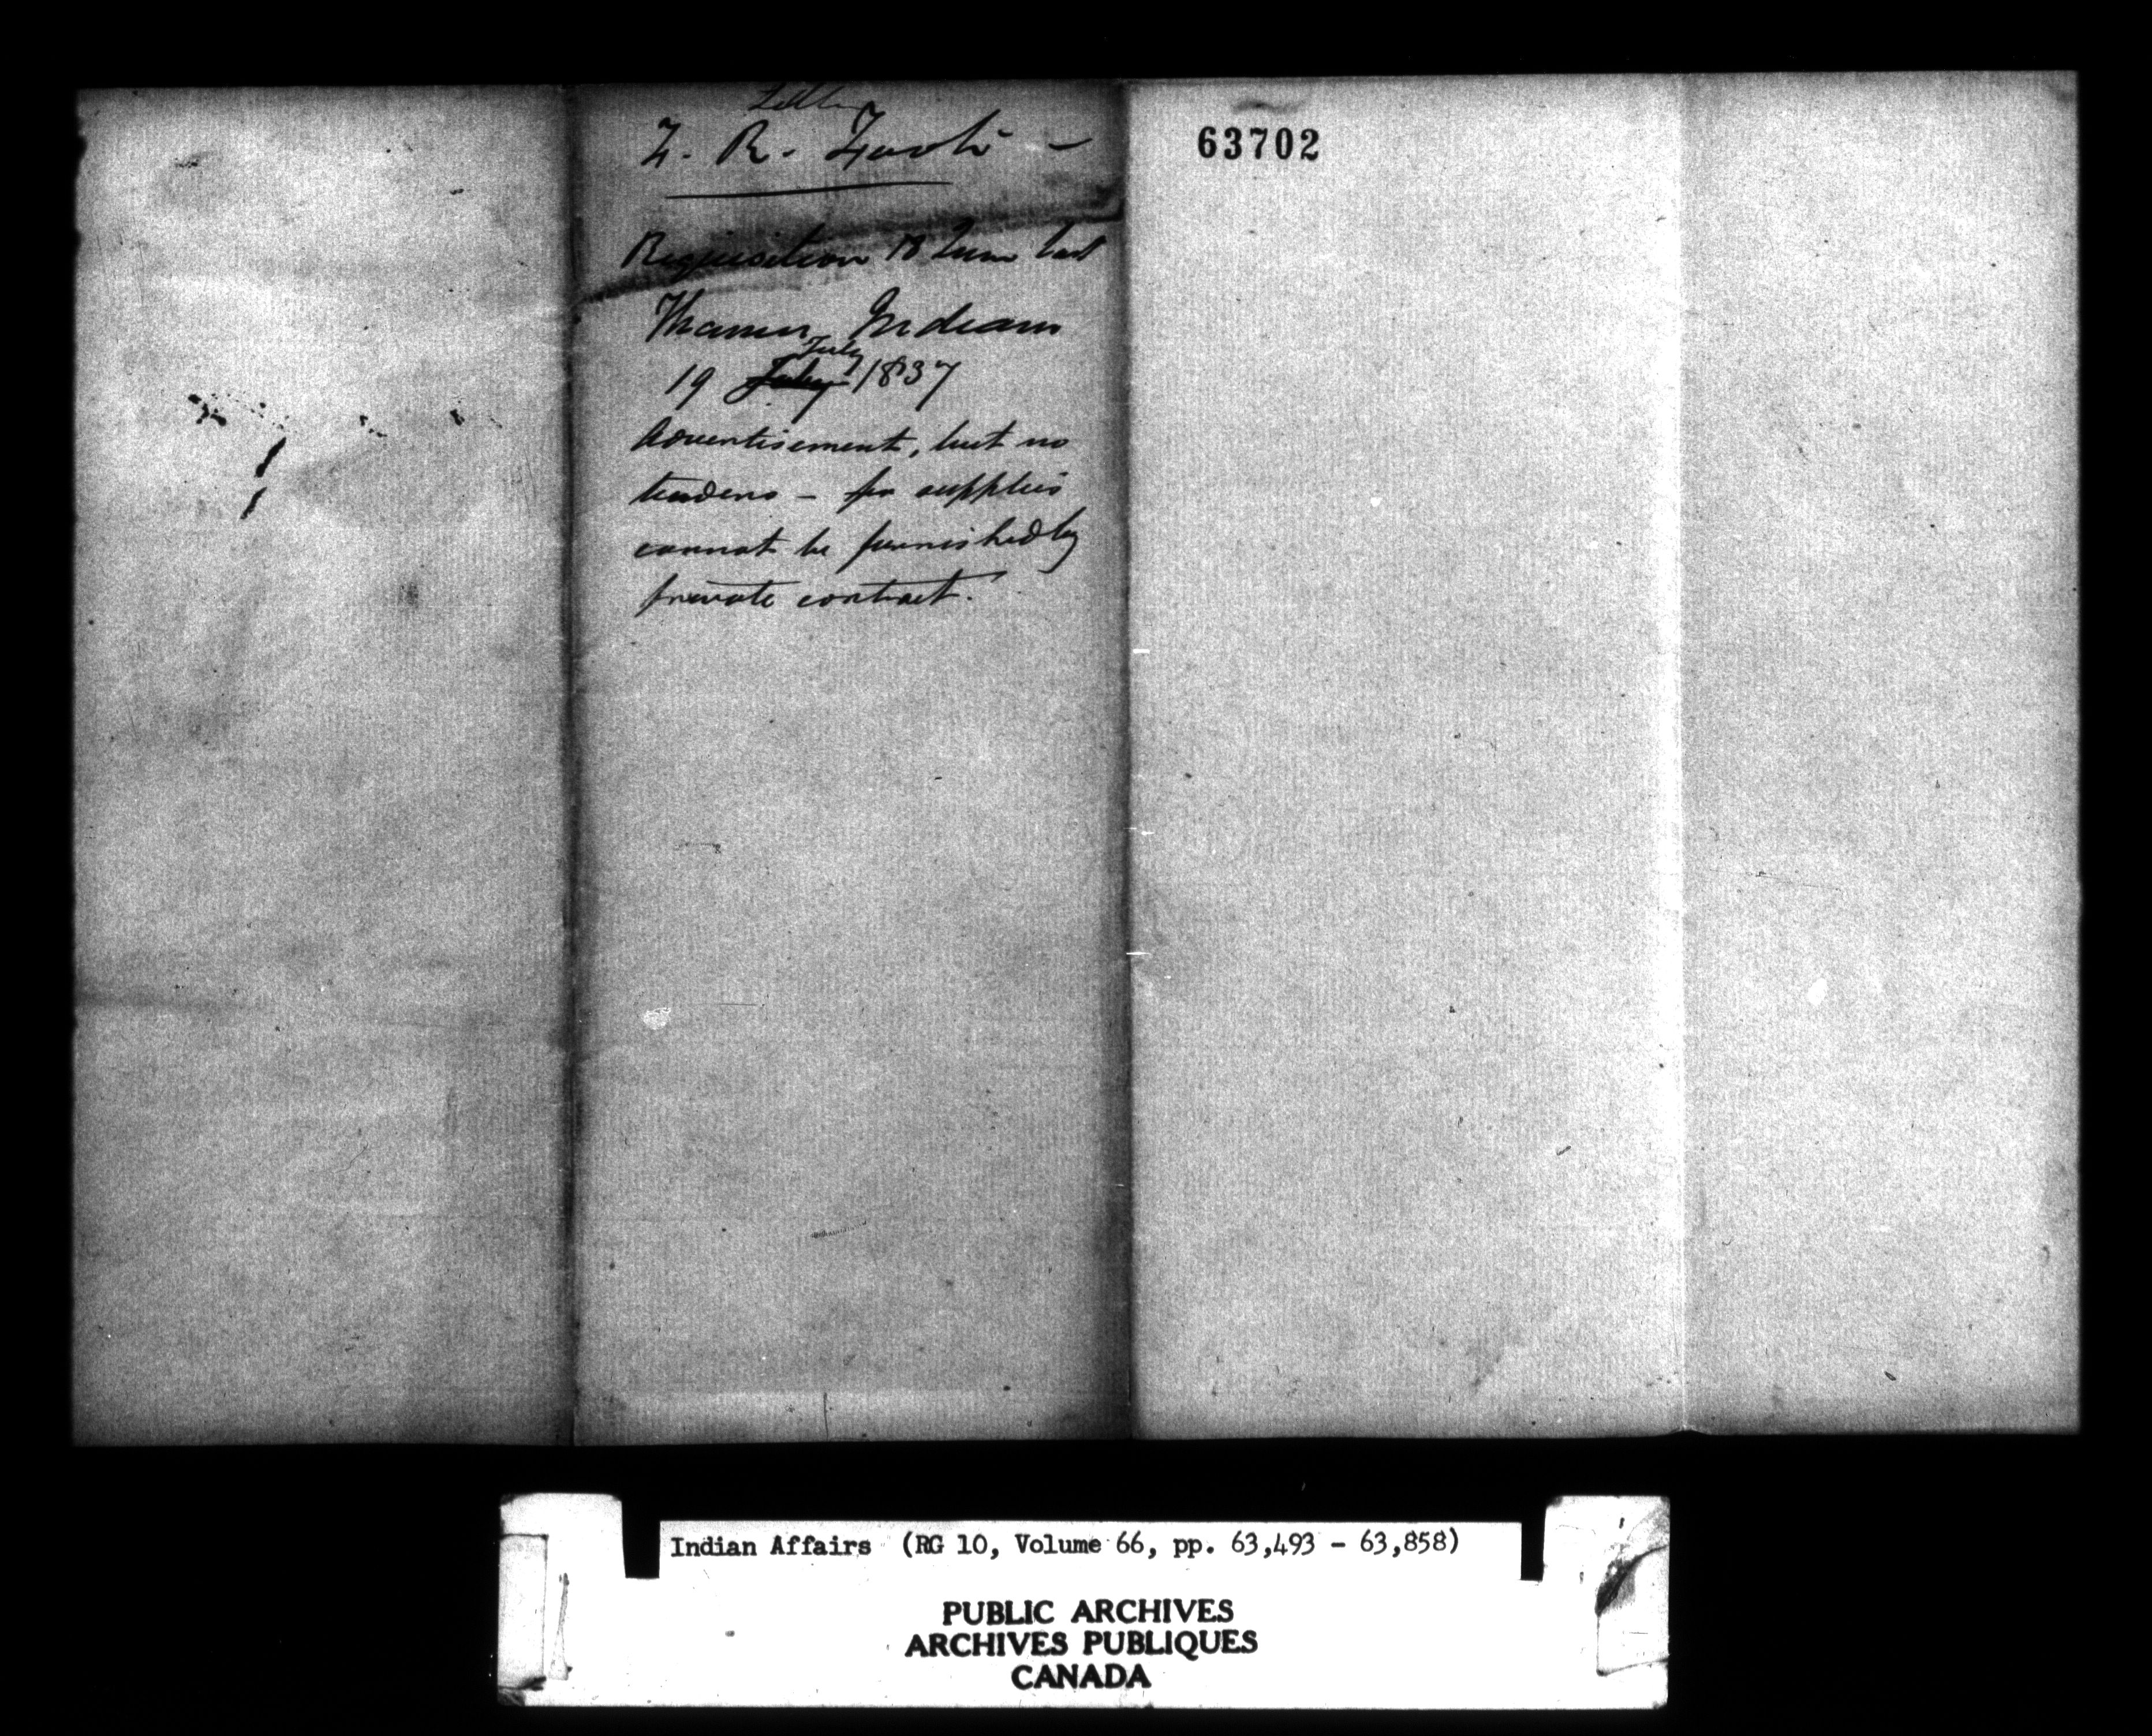 Letter
T. R. Foote —
Requisition 18 June last
Thames Indians
July
19 July 1837
Advertisement, but no
tenders — for supplies
cannot be furnished by
private contract.
63702
Indian Affairs (RG 10, Volume 66, pp. 63,493 - 63,858)
PUBLIC ARCHIVES
ARCHIVES PUBLIQUES
CANADA